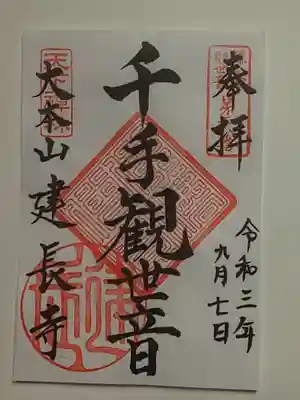 奉拝
令和三年
九月七日
千手觀世音
大本山建長寺